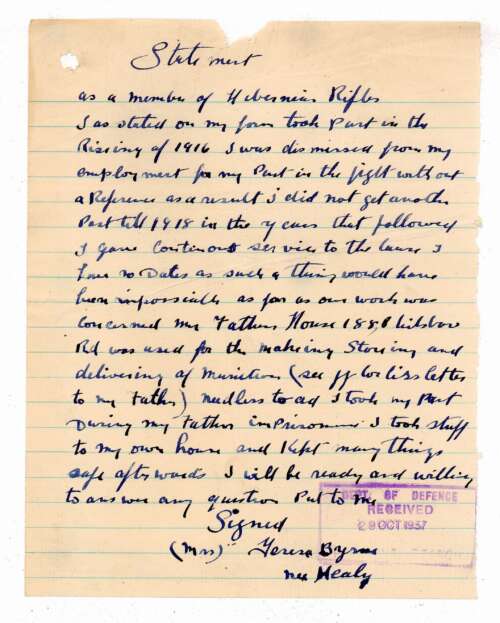 Statement
as a member of Hibernian Rifles
I as stated on my form took Part in the
Rissing of 1916 I was dismissed from my
employment for my Part in the fight without
a Reference as a result I did not get another
Post till 1918 in the years that followed
I gave Continous service to the cause I
have no Dates as such a thing would have
been impossible as far as our work was
Concerned my Fathers House 188
Rd was used for the makeing Storeing and
delivering of Munition (see letter
to my Father) needless to ad I took my Part
During my Fathers imprisonment I took stuff
to my own house and Kept many things
safe afterwards I will be ready and willing
to answer any question Put to me
DEPT. OF DEFENCE
RECEIVED
29 OCT 1937
Signed
(Mrs) Teresa Byrne
nee Healy